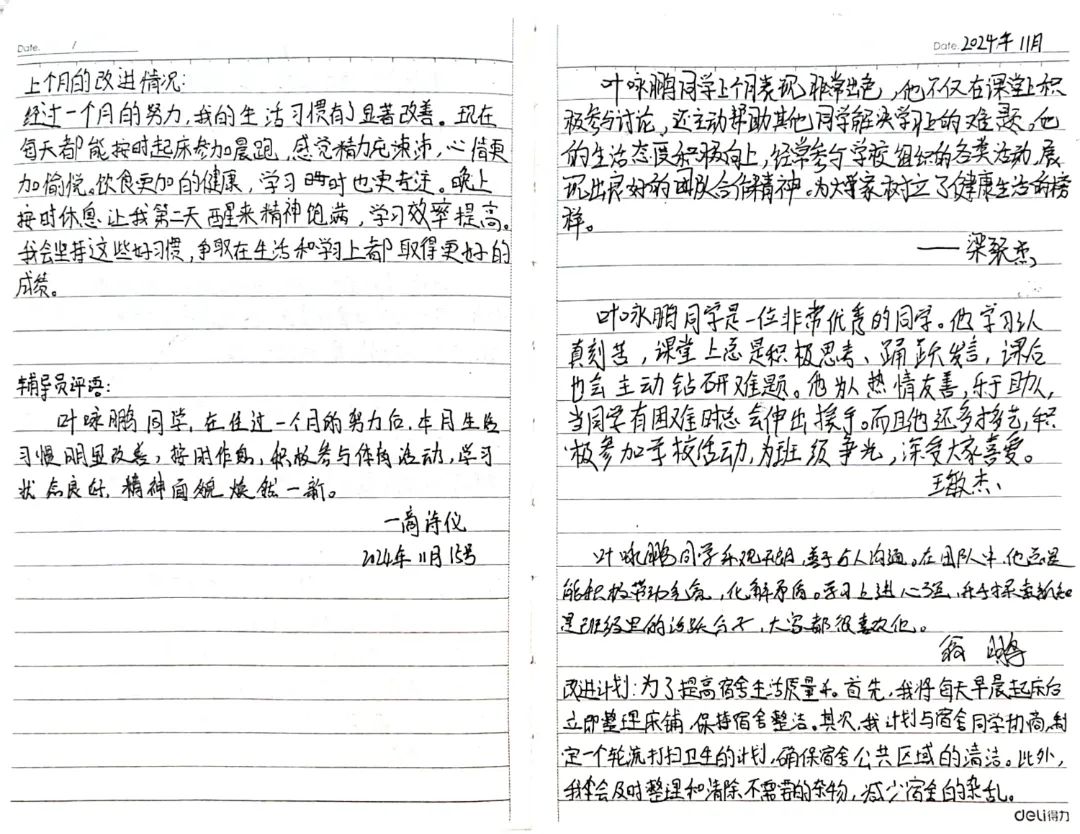 Date. 1
上个月的改进情况:
经过一个月的努力,我的生活习惯有了显著改善。现在
每天都能按时起床参加晨跑,感觉精力充沛,心情更
加愉悦。饮食更加的健康,学习时也更专注。晚上
按时休息让我第二天醒来精神饱满,学习效率提高。
我会坚持这些好习惯,争取在生活和学习上都取得更好的
成绩。
辅导员评语:
叶咏鹏同学,在经过一个月的努力后,本月生活
习惯明显改善,按时作息,积极参与体育活动,学习
状态良好,精神面貌焕然一新。
一商诗仪
2024年11月15号
Date. 2024年11月
叶咏鹏同学上个月表现非常出色,他不仅在课堂上积
极参与讨论,还主动帮助其他同学解决学习上的难题。他
的生活态度积极向上,经常参与学校组织的各类活动,展
现出良好的团队合作精神。为大家树立了健康生活的榜
样。
——梁杰
叶咏鹏同学是一位非常优秀的同学。他学习认
真刻苦,课堂上总是积极思考、踊跃发言,课后
也会主动钻研难题。他为人热情友善,乐于助人,
当同学有困难时总会伸出援手。而且他还多才多艺,积
极参加学校活动,为班级争光,深受大家喜爱。
王敏杰
叶咏鹏同学乐观开朗,善于与人沟通。在团队中,他总是
能积极带动气氛,化解矛盾。学习上进心强,并于探索新知
是班级里的活跃分子,大家都很喜欢他。
翁鹏
改进计划:为了提高宿舍生活质量。首先,我将每天早晨起床后
立即整理床铺,保持宿舍整洁。其次,我计划与宿舍同学协商,制
定一个轮流打扫卫生的计划,确保宿舍公共区域的清洁。此外,
我会及时整理和清除不需要的杂物,减少宿舍的杂乱。
deli得力